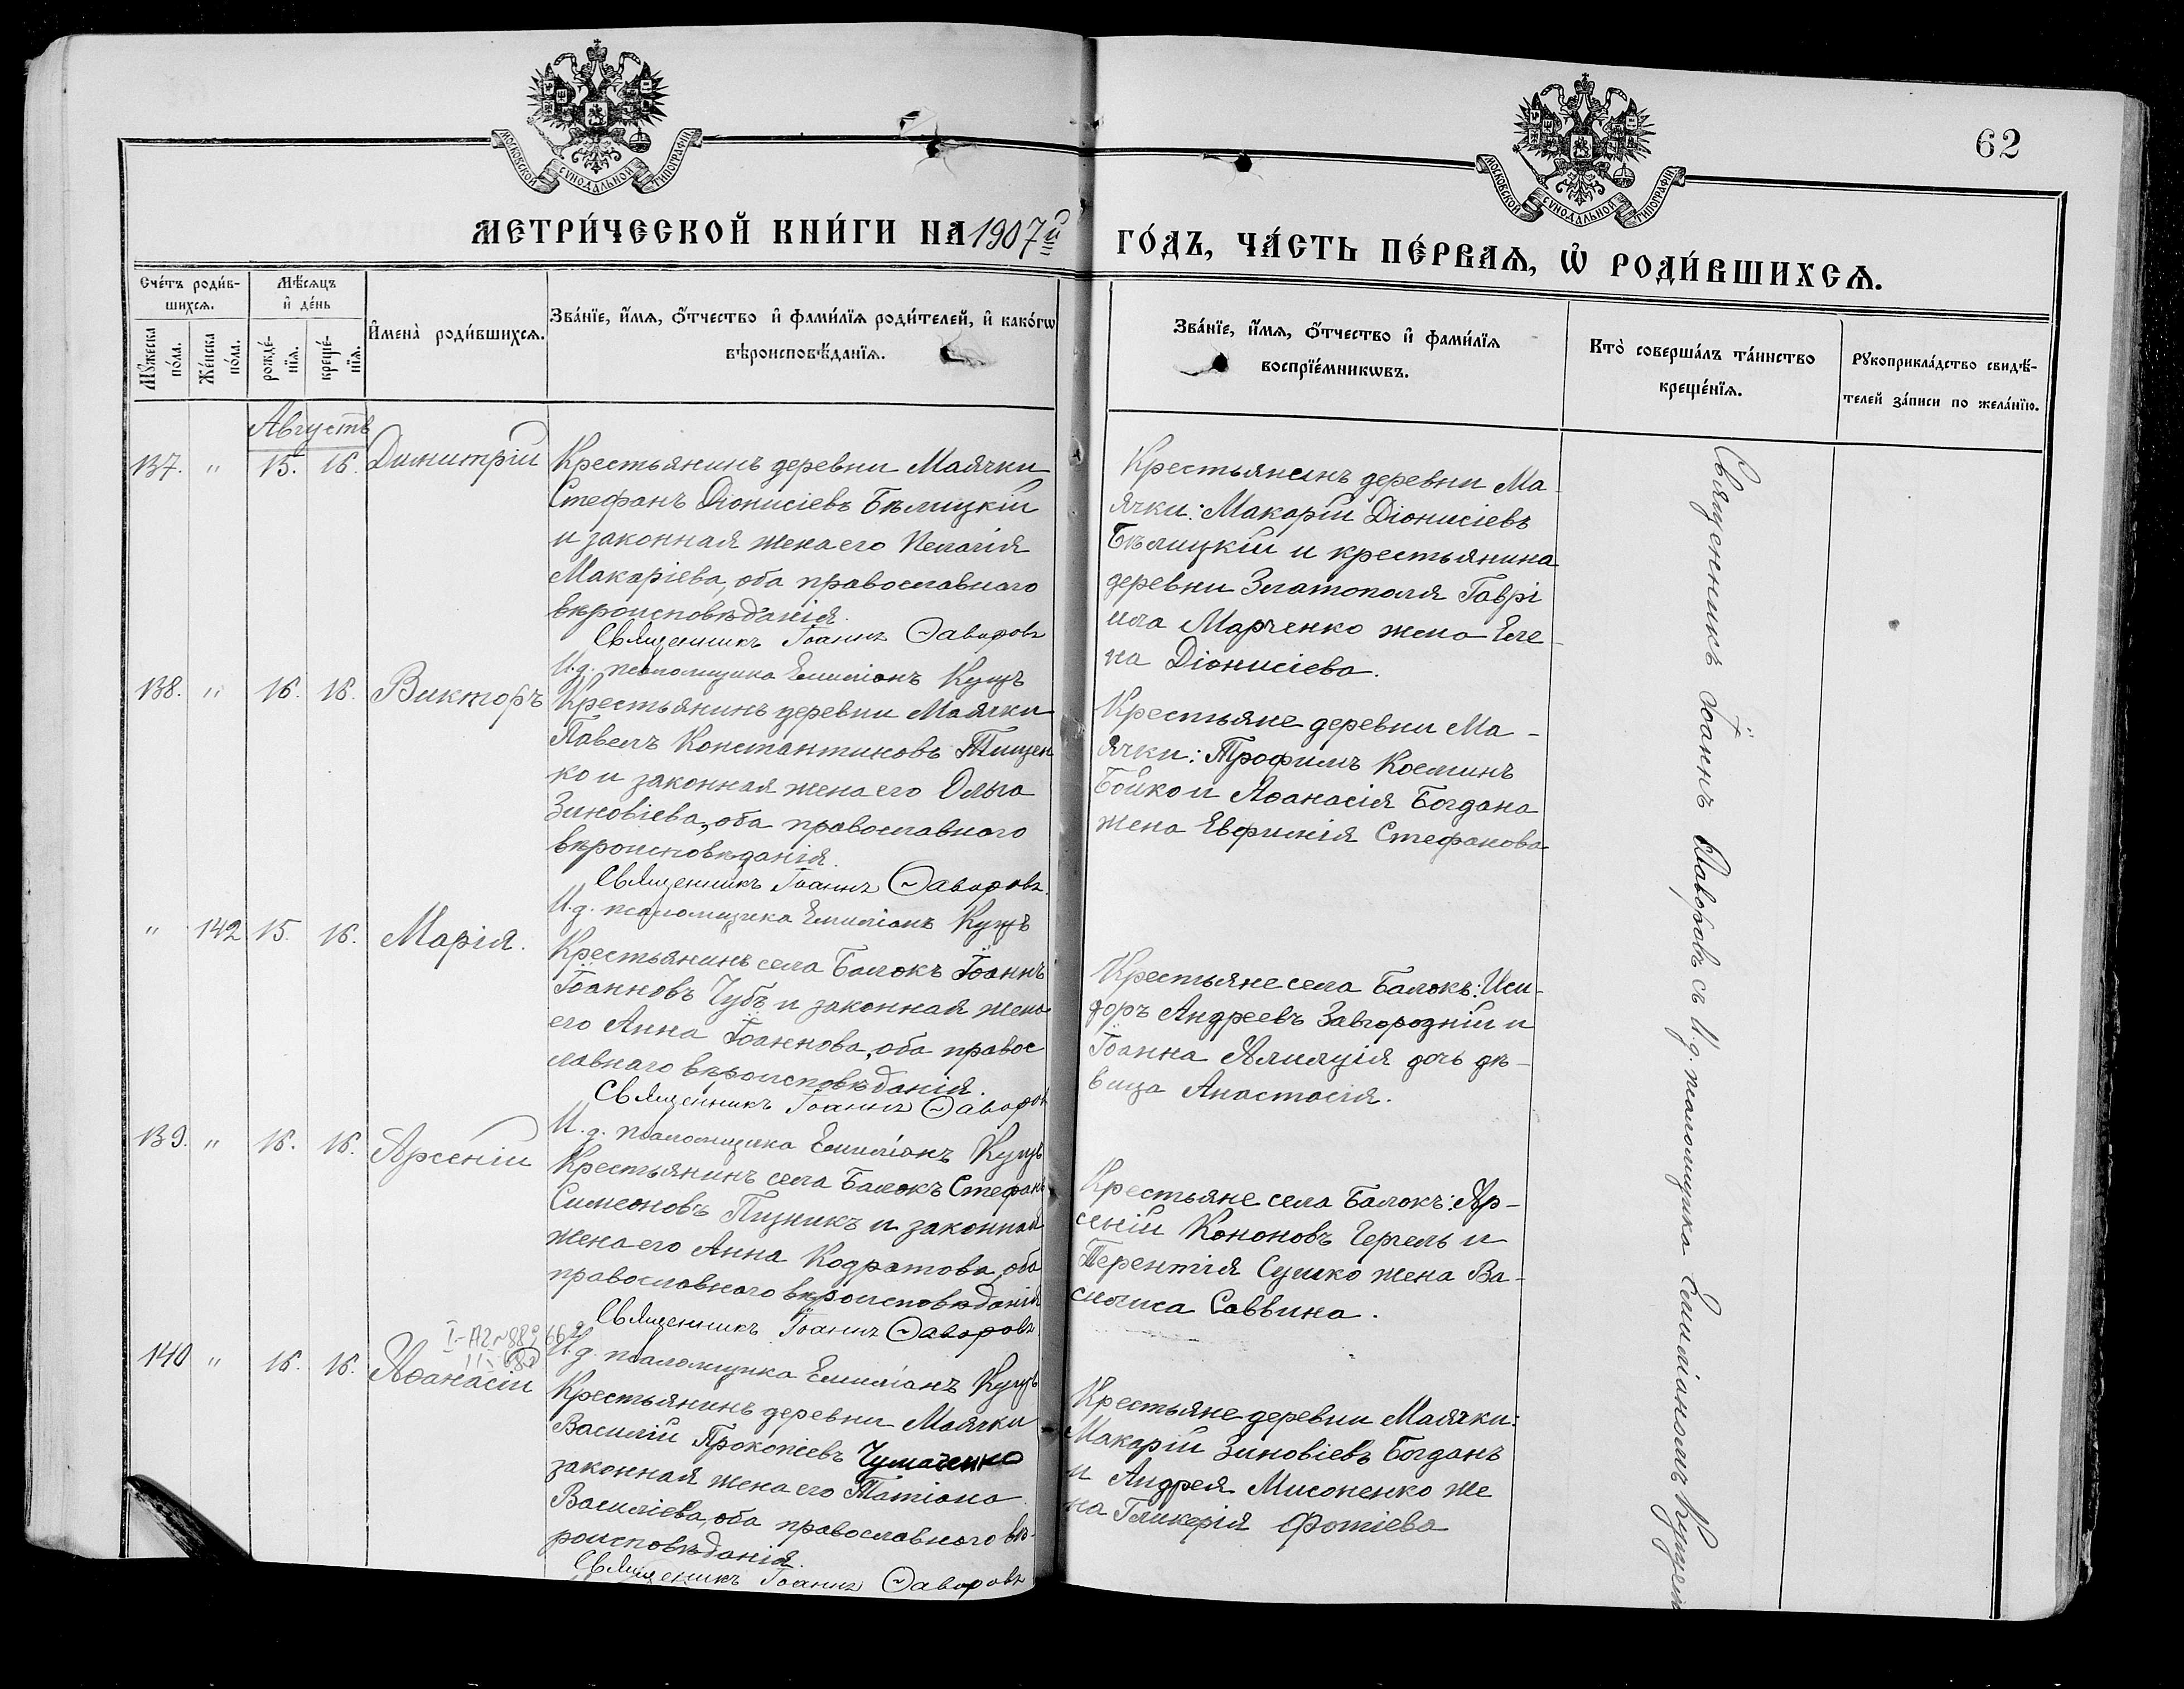 МОСКОВСКОЙ СУНОДАЛЬНОЙ ТИПОГРАФІИ
МОСКОВСКОЙ СУНОДАЛЬНОЙ ТИПОГРАФІИ
62
МЕТРИ́ЧЕСКОЙ КНИ́ГИ НА 1907й
ГО́ДЪ, ЧА́СТЬ ПЕ́РВАѦ, Ѡ РОДИ́ВШИХСѦ.
Сче́тъ роди́в-
шихсѧ.
Мѣ́сѧцъ
и де́нь
Мꙋ́жеска
по́ла.
Же́нска
по́ла.
рожде́-
нїѧ.
креще́-
нїѧ.
И҆мена̀ роди́вшихсѧ.
Зва́нїе, и҆́мѧ, о҆́тчество и҆ фами́лїѧ роди́телей, и҆ како́гѡ
вѣроисповѣ́данїѧ.
Зва́нїе, и҆́мѧ, о҆́тчество и҆ фами́лїѧ
воспрїе́мникѡвъ.
Кто̀ соверша́лъ та́инство
креще́нїѧ.
Рꙋкоприкла́дство свидѣ́-
телей за́писи по жела́нїю.
Августъ
137. " 15. 16. Димитрій
Крестьянинъ деревни Маячки
Стефанъ Діонисіевъ Бѣлицкій
и законная жена его Пелагія
Макаріева, оба православнаго
вѣроисповѣданія.
Священникъ Іоаннъ Ѳаворовъ
И.д. псаломщика Емиліанъ Кущъ
Крестьянинъ деревни Ма-
ячки: Макарій Діонисіевъ
Бѣлицкій и крестьянина
деревни Златополя Гаврі
ила Марченко жена Еле-
на Діонисіева.
138. " 16. 16. Викторъ
Крестьянинъ деревни Маячки
Павелъ Константиновъ Тищен
ко и законная жена его Ольга
Зиновіева, оба православнаго
вѣроисповѣданія.
Священникъ Іоаннъ Ѳаворовъ.
И.д. псаломщика Емиліанъ Кущъ
Крестьяне деревни Ма-
ячки: Трофимъ Косминъ
Бойко и Аѳанасія Богдана
жена Евфимія Стефанова
" 142 15. 16. Марія.
Крестьянинъ села Балокъ Іоаннъ
Іоанновъ Чубъ и законная жена
его Анна Іоаннова, оба правос
лавнаго вѣроисповѣданія.
Священникъ Іоаннъ Ѳаворовъ
И.д. псаломщика Емиліанъ Кущъ
Крестьяне села Балокъ: Иси-
доръ Андреевъ Завгородній и
Іоанна дочь дѣ-
вица Анастасія.
139. " 16. 16. Арсеній
Крестьянинъ села Балокъ Стефанъ
Симеоновъ и законная
жена его Анна Кодратова, оба
православнаго вѣроисповѣданія
Священникъ Іоаннъ Ѳаворовъ.
И.д. псаломщика Емиліанъ Кущъ
Крестьяне села Балокъ: Ар-
сеній Кононовъ и
Терентія Сушко жена Ва-
силиса Саввина.
140 " 16. 16. Аѳанасій
Крестьянинъ деревни Маячки
Василій Прокопіевъ Чумаченко
законная жена его Татіана
Василіева, оба православнаго вѣ-
роисповѣданія.
Священникъ Іоаннъ Ѳаворовъ
Крестьяне деревни Маячки:
Макарій Зиновіевъ Богданъ
и Андрея Мисоненко же
на Гликерія Фотіева
Священникъ Іоаннъ Ѳаворовъ съ И.д. псаломщика Емиліаномъ Кущемъ